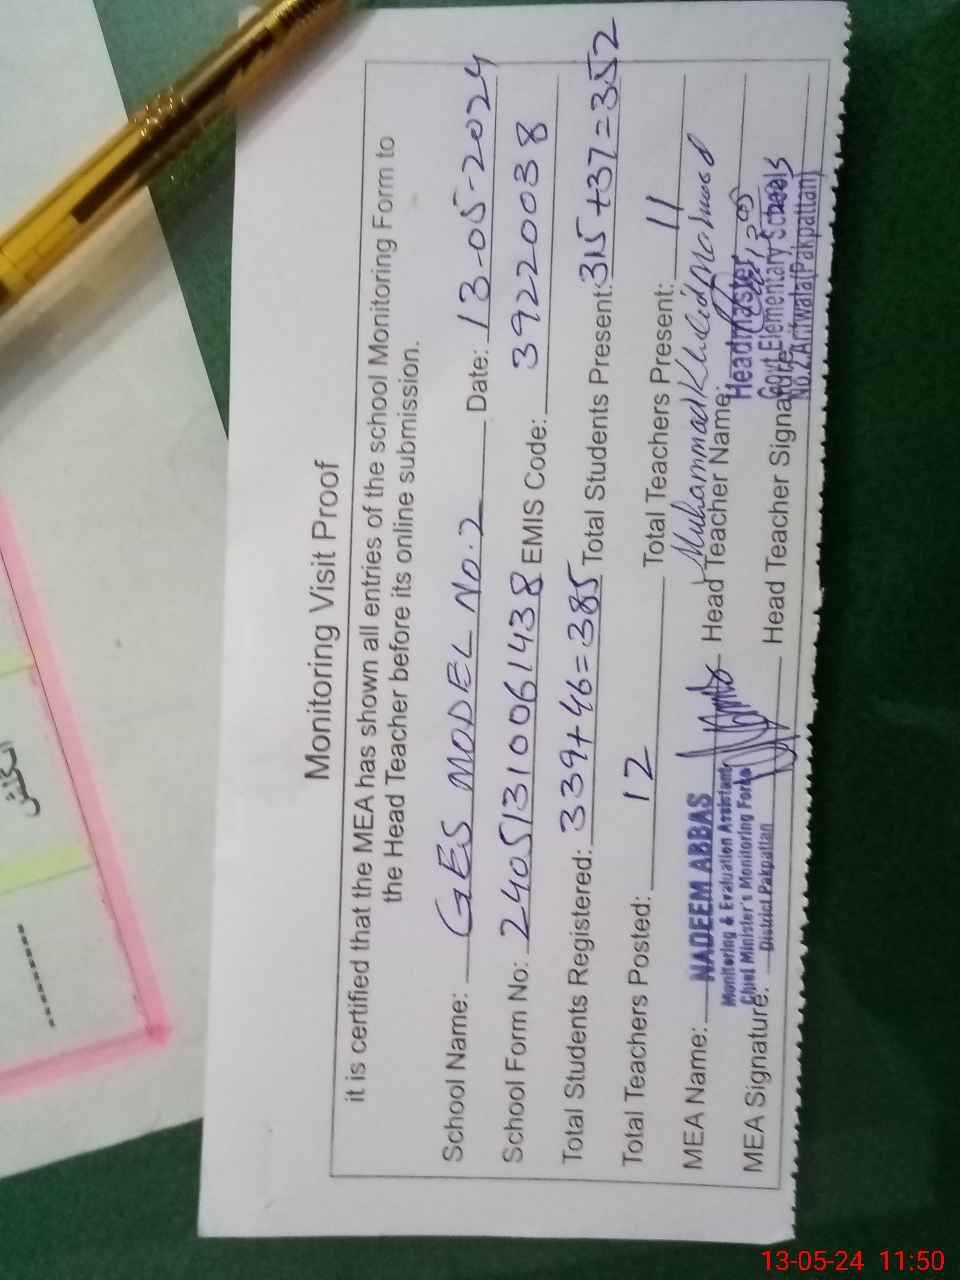 Monitoring Visit Proof
it is certified that the MEA has shown all entries of the school Monitoring Form to
the Head Teacher before its online submission.
School Name: GES MODEL No.2 Date: 13-05-2024
School Form No: 24051310061438 EMIS Code: 39220038
Total Students Registered: 339+46=385 Total Students Present: 315+37=352
Total Teachers Posted: 12 Total Teachers Present: 11
MEA Name: NADEEM ABBAS Head Teacher Name: Muhammad Khalid Mahmood
Monitoring & Evaluation Assistant
Chief Minister's Monitoring Force
District Pakpattan
MEA Signature: Head Teacher Signature:
Headmaster
Govt. Elementary School
No.2 Arifwala (Pakpattan)
انگلش
13-05-24 11:50